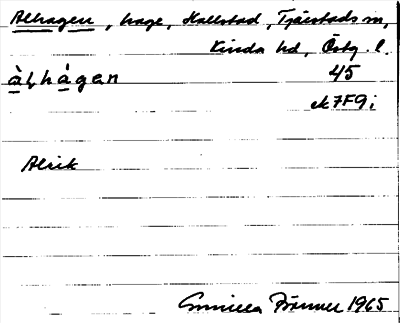 Alhagen, hage, Hallstad, Tjärstads sn,
Kinda hd, Östg. l.
àlhágan 45
ek 7F9i
Alrik
Gunilla Brönner 1965